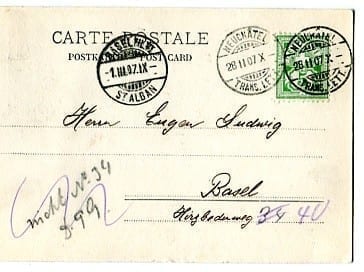 CARTE POSTALE
POSTKARTE POST CARD
BASEL
-1.III.07.IX
ST. ALBAN
NEUCHÂTEL
28 II 07 X
TRANS. LETT.
NEUCHÂTEL
28 II 07 X
TRANS. LETT.
Herrn Eugen Ludwig
Basel
Hirzbodenweg 34 40
nicht No. 34